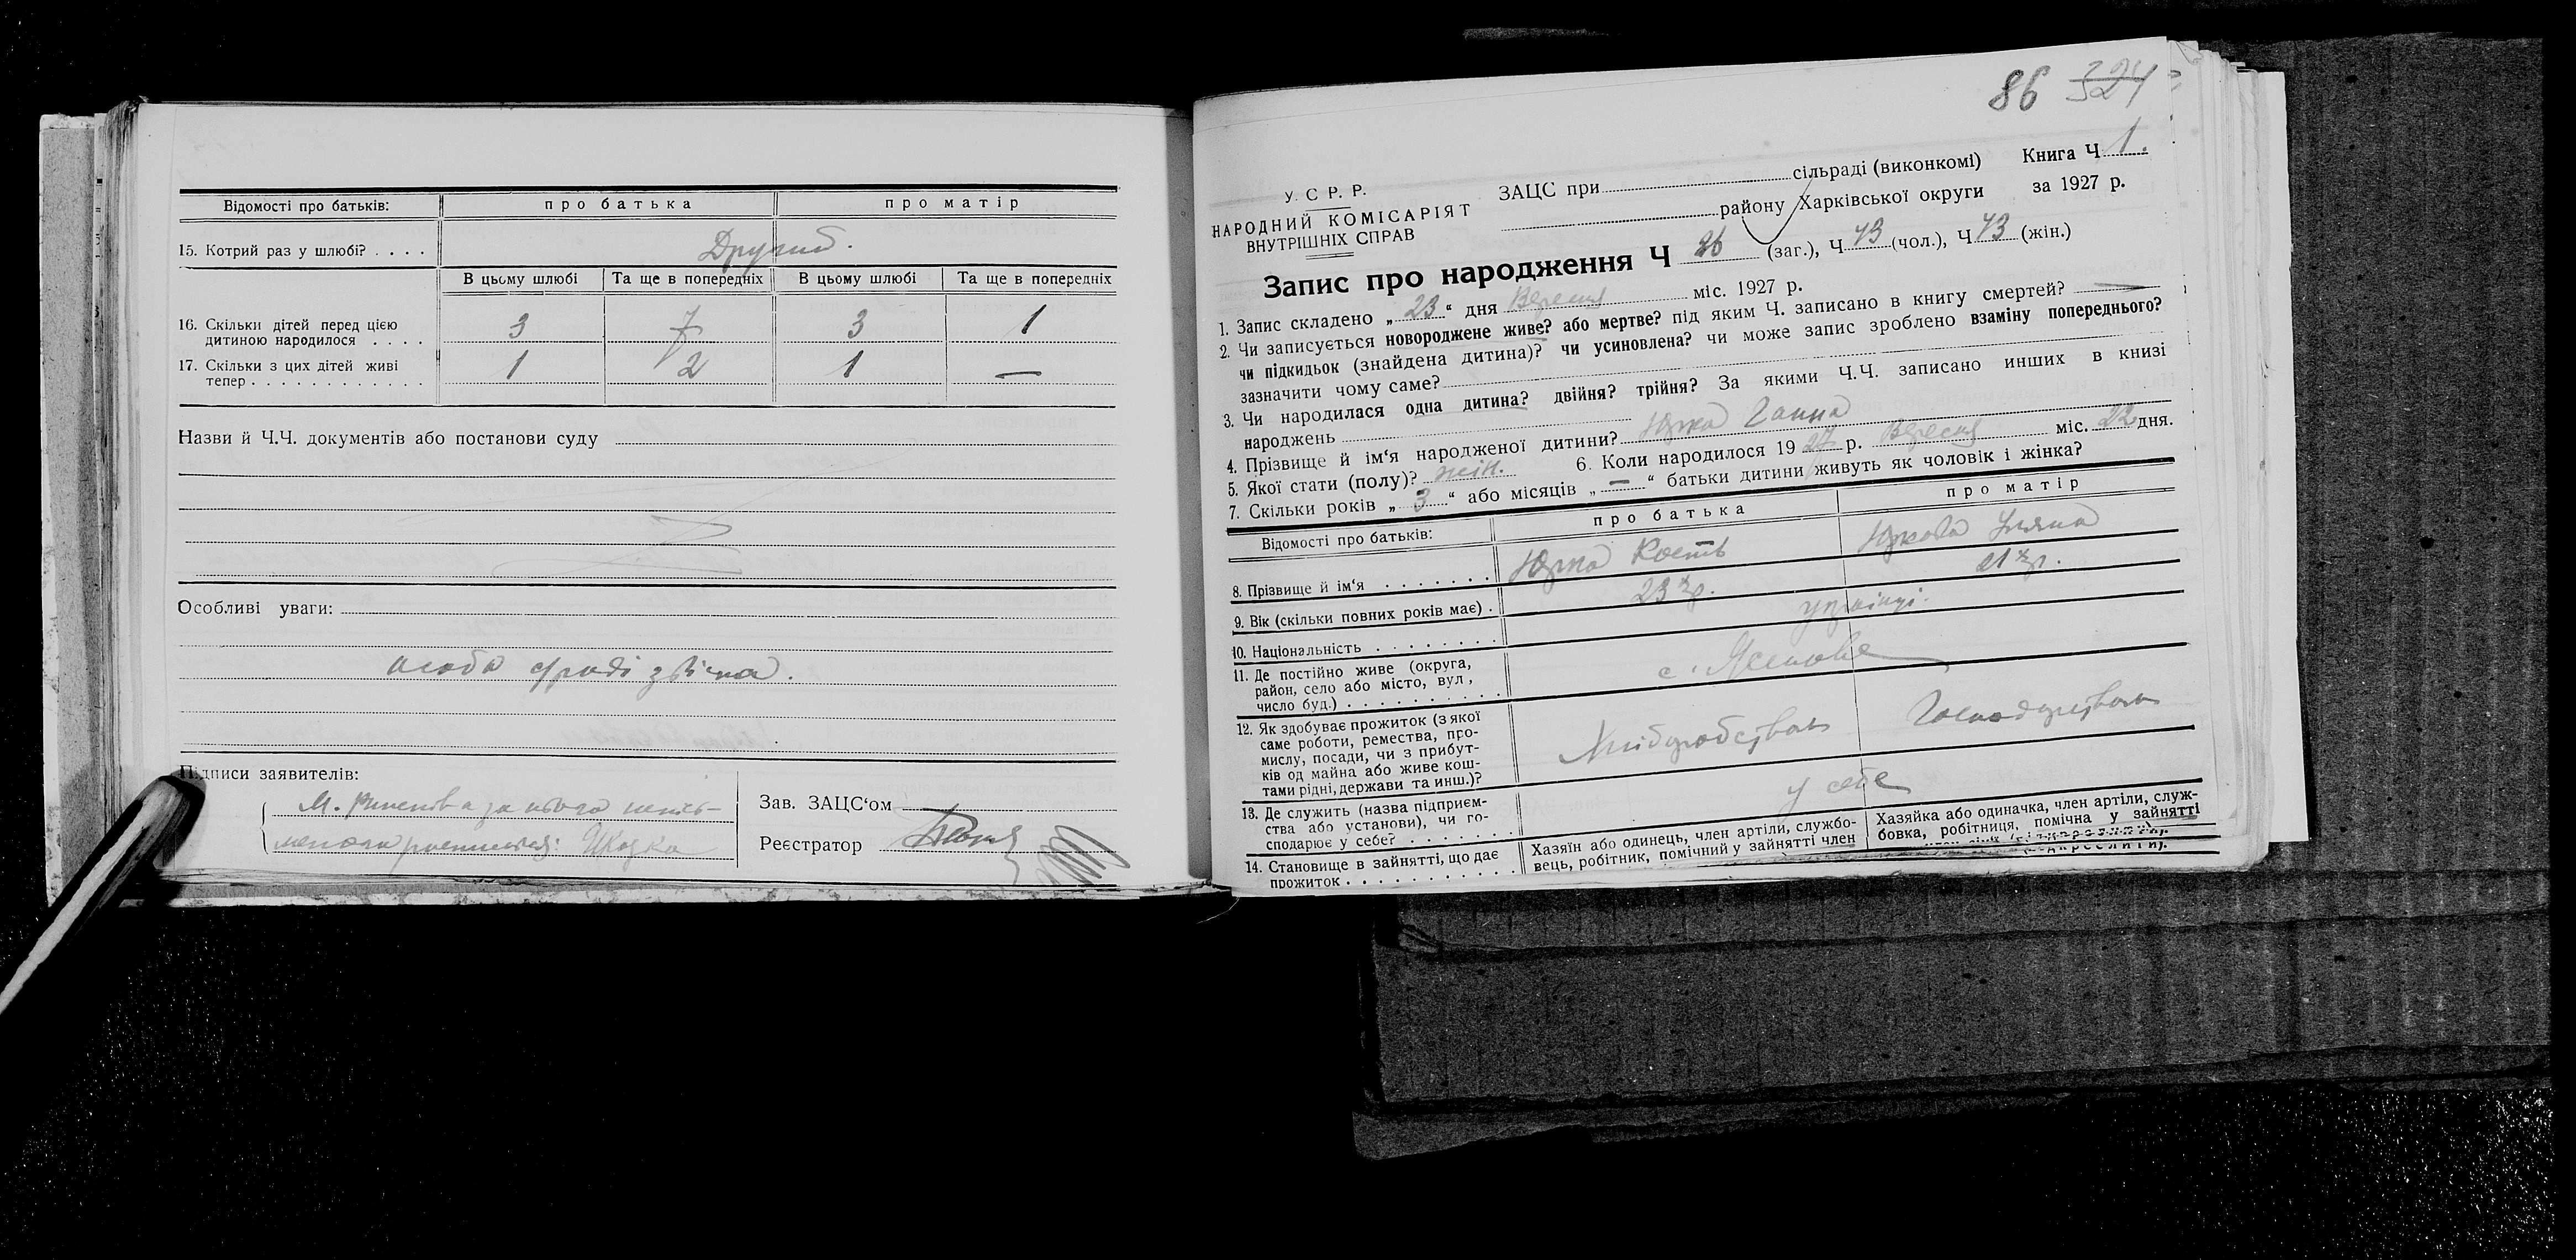 Відомості про батьків: про батька про матір
15. Котрий раз у шлюбі? . . . . Другий.
В цьому шлюбі Та ще в попередніх В цьому шлюбі Та ще в попередніх
16. Скільки дітей перед цією
дитиною народилося . . . . 3 7 3 1
17. Скільки з цих дітей живі
тепер . . . . . . . . . . . . 1 2 1 —
Назви й Ч.Ч. документів або постанови суду
Особливі уваги:
особа сфраді звісна.
Підписи заявителів:
М. за нього
Шкодка
Зав. ЗАЦС‘ом
Реєстратор
86 324
У. С. Р. Р.
НАРОДНИЙ КОМІСАРІЯТ
ВНУТРІШНІХ СПРАВ
ЗАЦС при сільраді (виконкомі) Книга Ч 1.
району Харківської округи за 1927 р.
Запис про народження Ч 86 (заг.), Ч 43 (чол.), Ч 43 (жін.)
1. Запис складено „ 23 “ дня Вересня міс. 1927 р.
2. Чи записується новороджене живе? або мертве? під яким Ч. записано в книгу смертей? —
чи підкидьок (знайдена дитина)? чи усиновлена? чи може запис зроблено взаміну попереднього?
зазначити чому саме?
3. Чи народилася одна дитина? двійня? трійня? За якими Ч.Ч. записано инших в книзі
народжень
4. Прізвище й ім‘я народженої дитини? Юрка Ганна
5. Якої стати (полу)? жін. 6. Коли народилося 19 27 р. Вересня міс. 22 дня.
7. Скільки років „ 3 “ або місяців „ — “ батьки дитини живуть як чоловік і жінка?
Відомості про батьків: про батька про матір
8. Прізвище й ім‘я . . . . . . . Юрка Кость Юркова Уляна
9. Вік (скільки повних років має) . 23 р. 21 р.
10. Національність . . . . . . . . українці.
11. Де постійно живе (округа,
район, село або місто, вул,
число буд.) . . . . . . . . . . с.
12. Як здобуває прожиток (з якої
саме роботи, ремества, про-
мислу, посади, чи з прибут-
ків од майна або живе кош-
тами рідні, держави та инш.)?
Хліборобством Господарством
13. Де служить (назва підприєм-
ства або установи), чи го-
сподарює у себе? . . . . . . . у себе
14. Становище в зайнятті, що дає
прожиток . . . . . . . . . . .
Хазяїн або одинець, член артіли, службо-
вець, робітник, помічний у зайнятті член
Хазяйка або одиначка, член артіли, служ-
бовка, робітниця, помічна у зайнятті